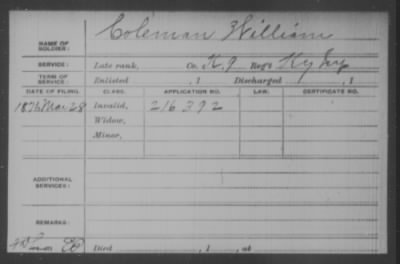 Coleman William
NAME OF SOLDIER:
SERVICE: Late rank, Co. K, 9 Reg't Ky Inf
TERM OF SERVICE: Enlisted , 1 Discharged , 1
DATE OF FILING. CLASS. APPLICATION NO. LAW. CERTIFICATE NO.
1876 Mar 28 Invalid, 216392
Widow,
Minor,
ADDITIONAL SERVICES:
REMARKS:
Died , 1 , at